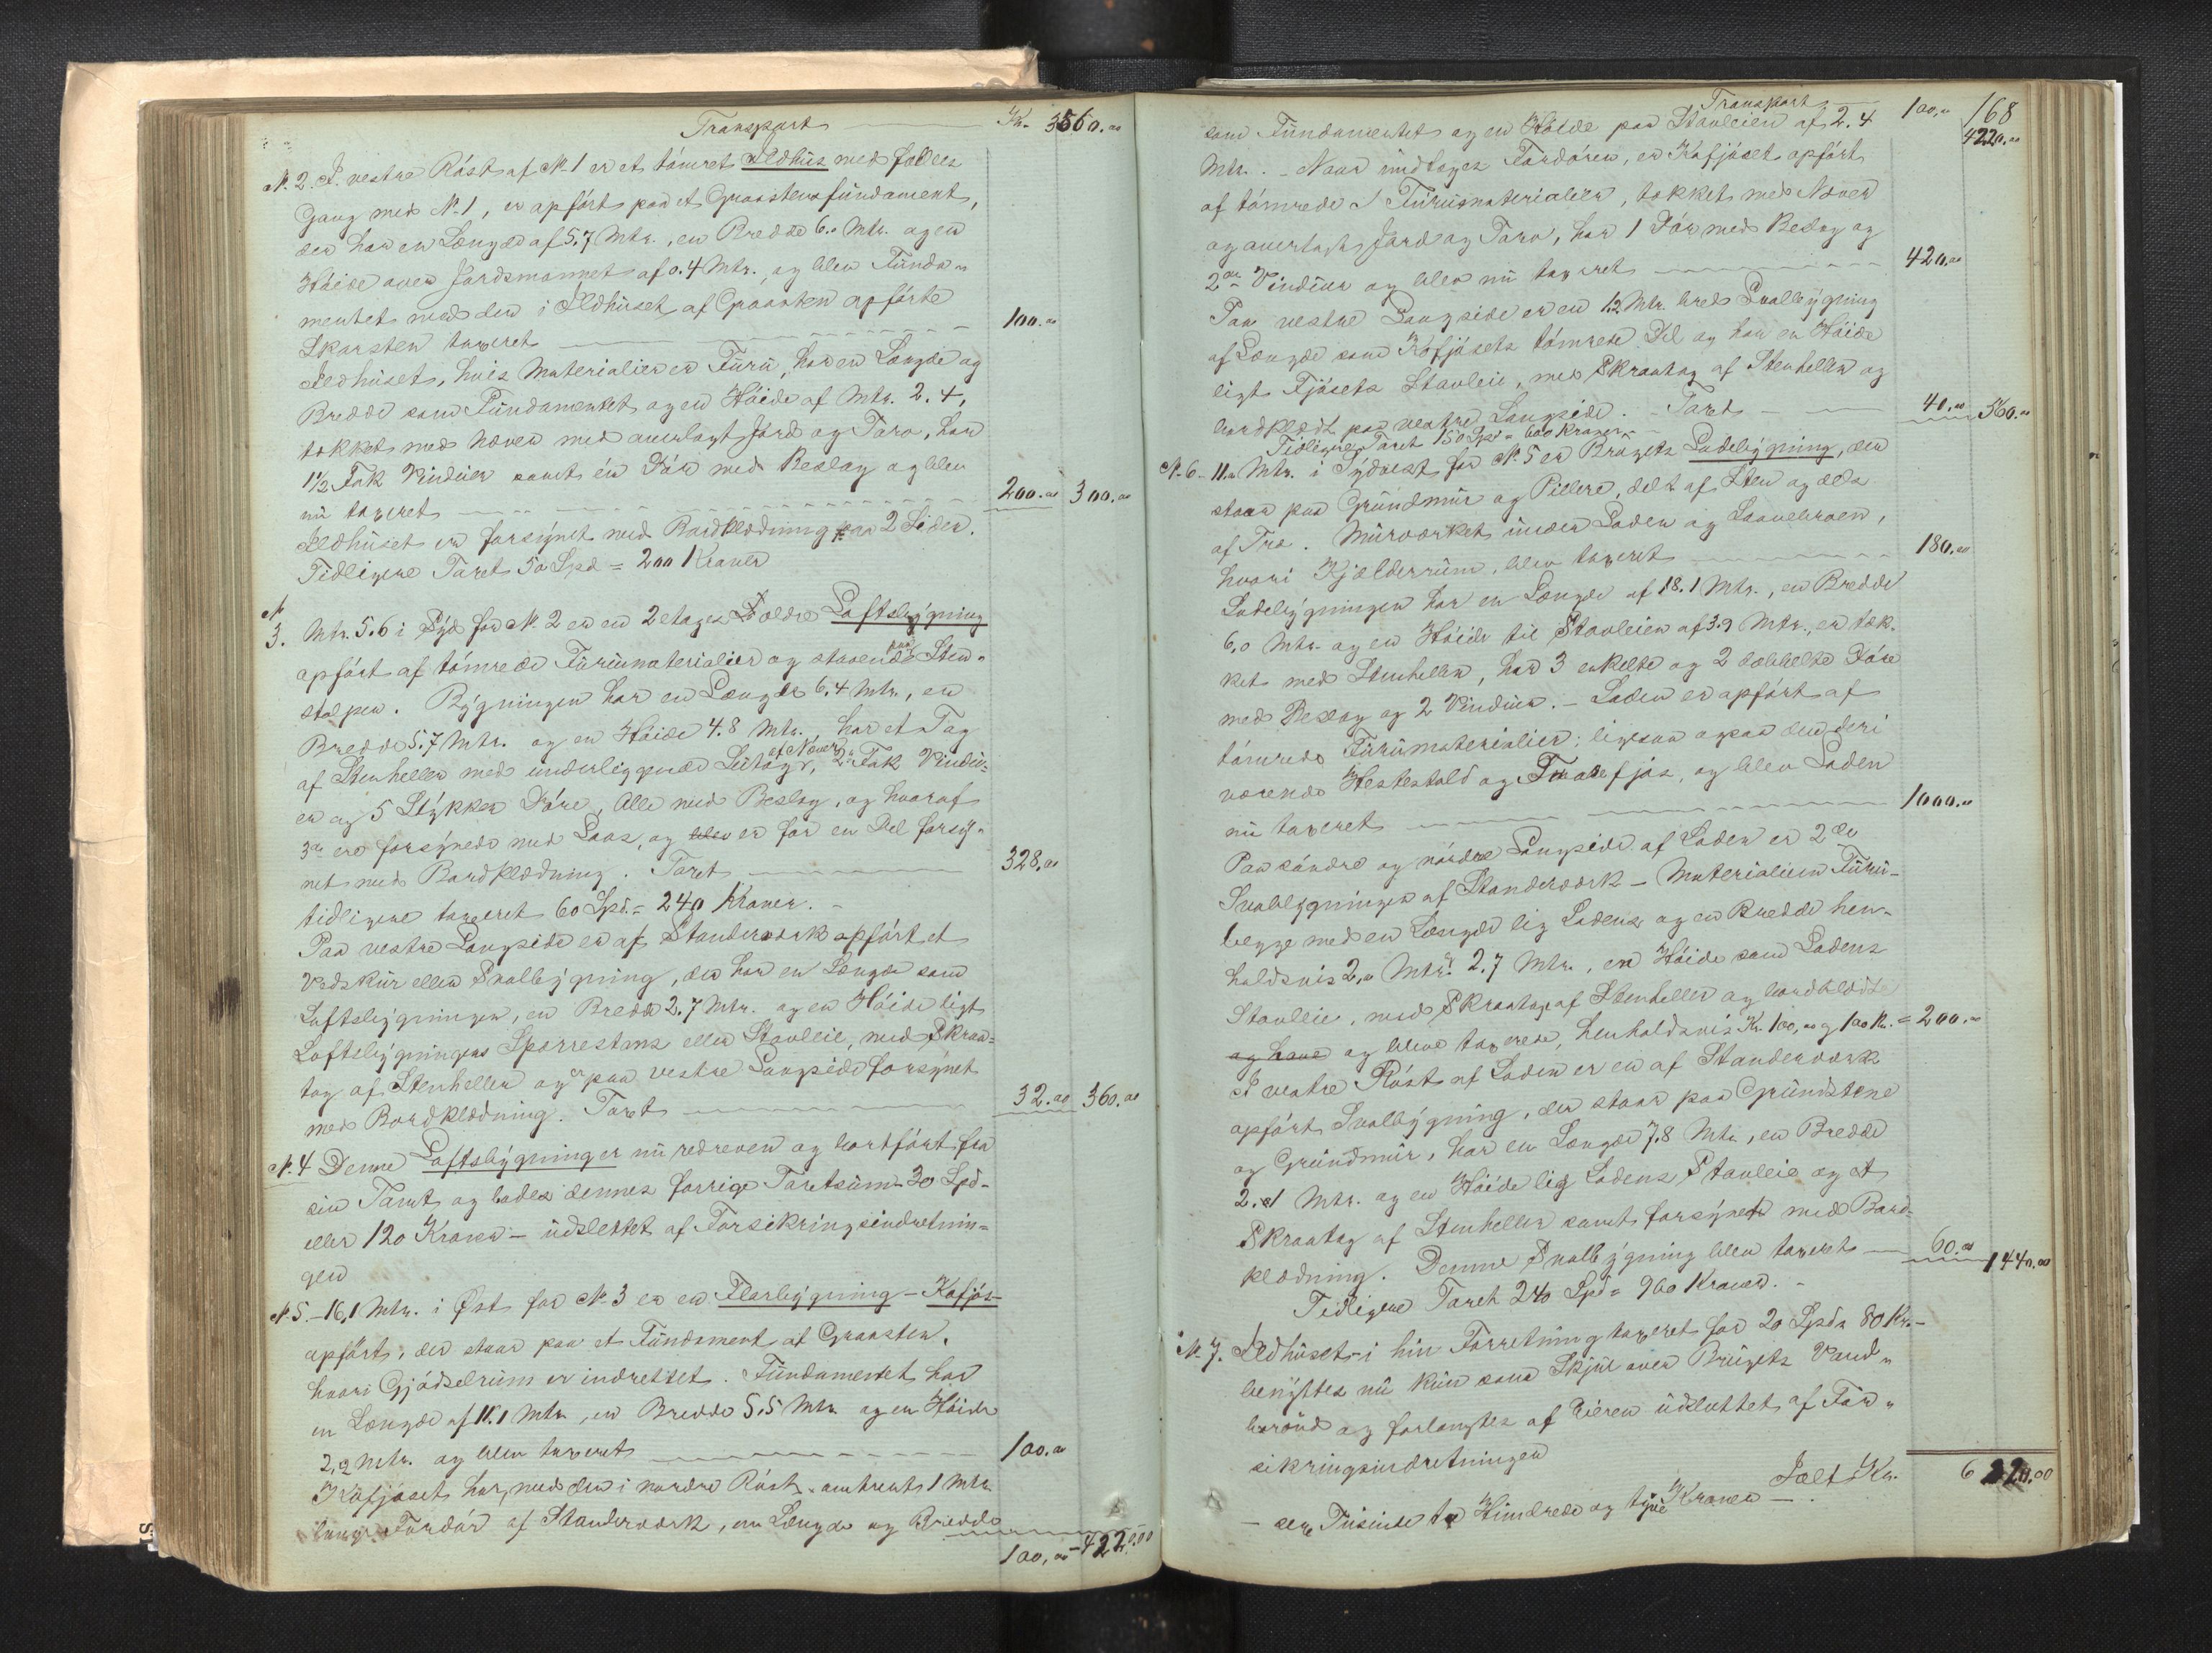 Transport Kr. 3560.00
N. 2. I vestre Röst af N. 1 er et tömret Ildhus med fælles
Gang med N. 1, er opfört paa et Graastensfundament,
der har en Længde af 5.7 Mtr., en Bredde 6.0 Mtr. og en
Höide over Jordsmonnet af 0.4 Mtr., og blev Funda-
mentet med den i Ildhuset af Graasten opförte
Skorsten taxeret 100.00
Ildhuset, hvis Materialier er Furu, har en Længde og
Bredde som Fundamentet og en Höide af Mtr. 2.4,
tækket med Næver med overlagt Jord og Torv, har
1½ Fak Vinduer samt én Dör med Beslag og blev
nu taxeret 200.00 300.00
Ildhuset er forsynet med Bordklædning paa 2 Sider.
Tidligere Taxt 50 Spd = 200 Kroner
N
3. Mtr. 5.6 i Syd for N. 2 er en 2 etages ældre Loftsbygning
opfört af tömrede Furumaterialier og staaende paa Sten-
stolper. Bygningen har en Længde 6.4 Mtr., en
Bredde 5.7 Mtr. og en Höide 4.8 Mtr., har et Tag
af Stenheller med underliggende Sutag af Næver, 2 Fak Vindu-
er og 5 Stykker Döre, Alle med Beslag, og hvoraf
3de ere forsynede med Laas, og blev er for en Del forsy-
net med Bordklædning. Taxt 328.00
tidligere taxeret 60 Spd. = 240 Kroner.
Paa vestre Langside er af Standerværk opfört et
Vedskur eller Svalbygning, der har en Længde som
Loftsbygningen, en Bredde 2.7 Mtr. og en Höide ligt
Loftsbygningens Sparrestans eller Stavleie, med Skraa-
tag af Stenheller og er paa vestre Langside forsynet
med Bordklædning. Taxt 32.00 360.00
N. 4 Denne Loftsbygning er nu nedreven og bortfört fra
sin Tomt og bades dennes forrige Taxtsum 30 Spd-
eller 120 Kroner - udslettet af Forsikringsindretnin-
gen
N. 5. - 16,1 Mtr. i Øst for N. 3 er en Florbygning - Kofjös-
opfört, der staar paa et Fundament af Graasten,
hvori Gjödselrum er indrettet. Fundamentet har
en Længde af 11.1 Mtr, en Bredde 5,5 Mtr og en Höide
2,2 Mtr. og blev taxeret 100.00
Kofjöset har, med den i nordre Röst omtrent 1 Mtr.
lange Fordör af Standerværk, en Længde og Bredde
100,00 4220.00
Transport 100,00 168
som Fundamentet og en Höide paa Stavleien af 2.4 4220.00
Mtr. - Naar undtages Fordören, er Kofjöset opfört
af tömrede Furumaterialier, tækket med Næver
og overlagt Jord og Torv, har 1 Dör med Beslag og
2de Vinduer og blev nu taxeret 420.00
Paa vestre Langside er en 1.2 Mtr. bred Svalbygning
af Længde som Kofjösets tömrede Del og har en Höide
ligt Fjösets Stavleie, med Skraatag af Stenheller og
bordklædt paa vestre Langside. - Taxt 40.00 560.00
Tidligere Taxt 150 Spd = 600 Kroner
N. 6. 11.0 Mtr. i Sydvest for N. 5 er Brugets Ladebygning, der
staar paa Grundmur og Pillere, dels af Sten og dels
af Træ. Murværket under Laden og Laavebroen,
hvori Kjælderrum, blev taxeret 180.00
Ladebygningen har en Længde af 18.1 Mtr., en Bredde
6,0 Mtr. og en Höide til Stavleien af 3.9 Mtr., er tæk-
ket med Stenheller, har 3 enkelte og 2 dobbelte Döre
med Beslag og 2 Vinduer. - Laden er opfört af
tömrede Furumaterialier; ligesaa ogsaa den deri
værende Hestestald og fjös, og blev Laden
nu taxeret 1000.00
Paa söndre og nordre Langside af Laden er 2de
Svalbygninger af Standerværk - Materialier Furu -
begge med en Længde lig Ladens og en Bredde hen-
holdsvis 2,0 Mtr. 2.7 Mtr., en Höide som Ladens
Stavleie, med Skraatage af Stenheller og bordklædte
og have og bleve taxerede, henholdsvis Kr. 100,00 og 100 Kr. = 200.00
I vestre Röst af Laden er en af Standerværk
opfört Svalbygning, der staar paa Grundstene
og Grundmur, har en Længde 7.8 Mtr, en Bredde
2.1 Mtr. og en Höide lig Ladens Stavleie og et
Skraatag af Stenheller samt forsynet med Bord-
klædning. Denne Svalbygning blev taxeret 60.00 1440.00
Tidligere Taxt 240 Spd = 960 Kroner. -
N. 7. Ildhuset i hin Forretning taxeret for 20 Spd = 80 Kr. -
benyttes nu kun som Skjul over Brugets Vand-
brönd og forlangtes af Eieren udslettet af For-
sikringsindretningen
Ialt Kr. 6220.00
- sex Tusinde to Hundrede og tyve Kroner -